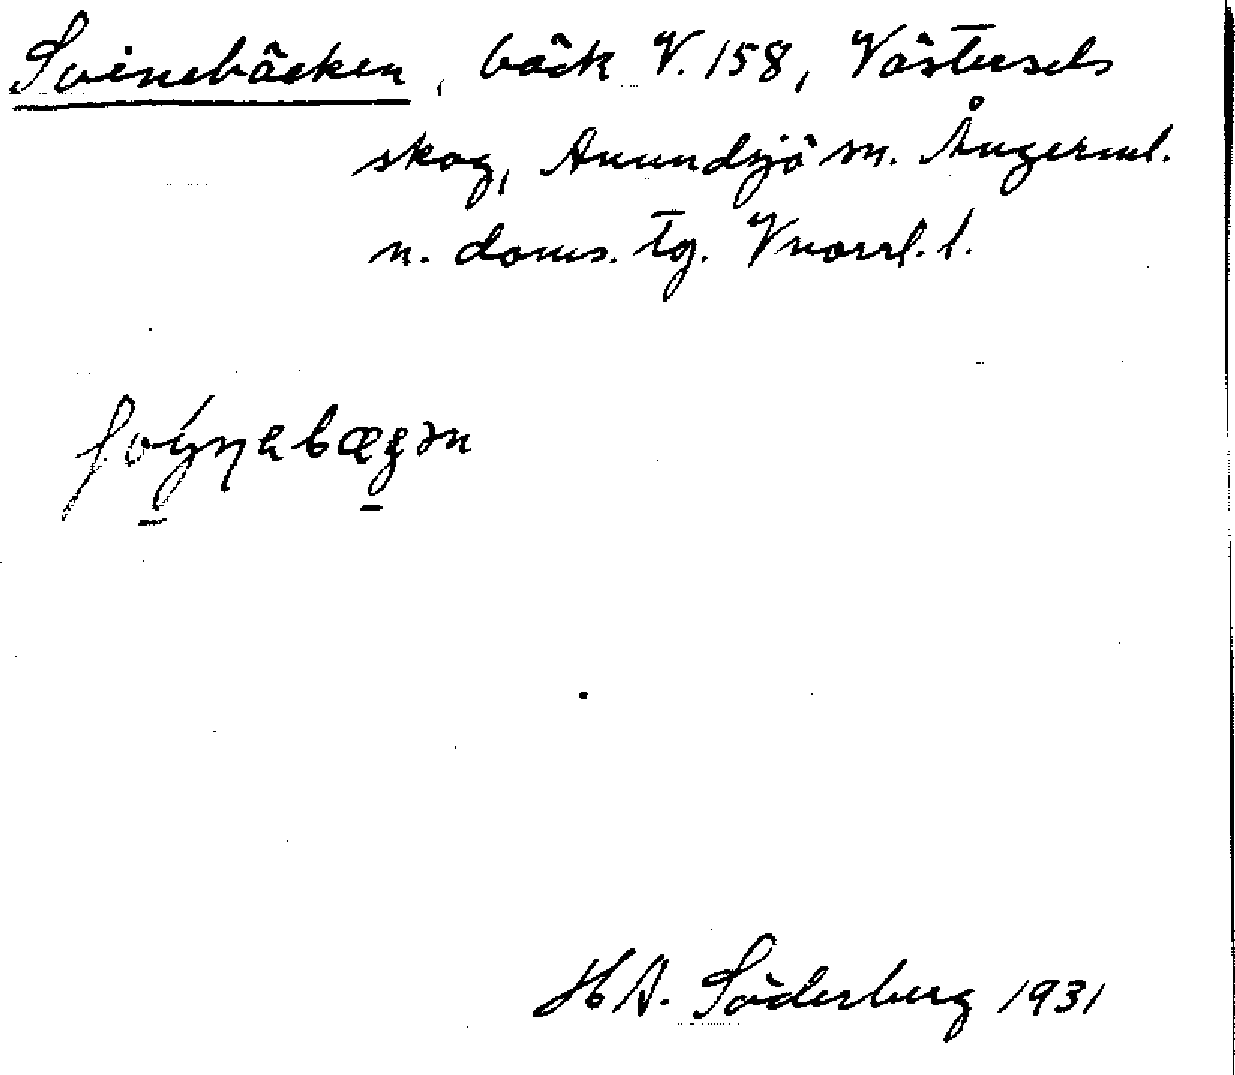 Svinebäcken, bäck V. 158, Västersels
skog, Anundsjö sn. Ångerml.
n. doms. tg. Vnorrl. l.
H A. Söderberg 1931